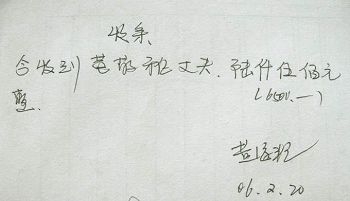 收条
今收到黄 租丈夫.陆仟伍佰元
整.
(6500.一)
黄
06.2.20